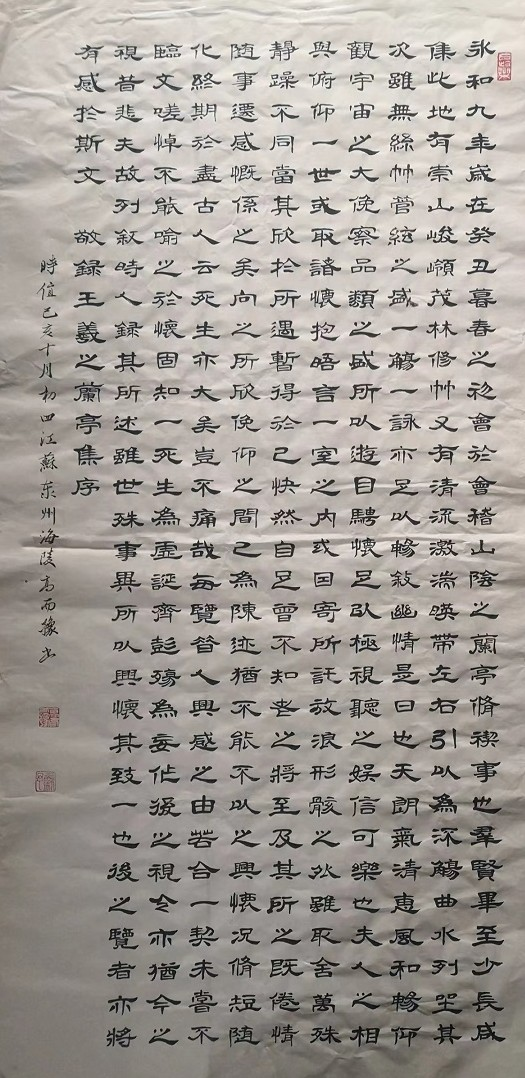 永和九年歲在癸丑暮春之初會於會稽山陰之蘭亭脩禊事也羣賢畢至少長咸
集此地有崇山峻嶺茂林修竹又有清流激湍暎帶左右引以為流觴曲水列坐其
次雖無絲竹管絃之盛一觴一詠亦足以暢敘幽情是日也天朗氣清惠風和暢仰
觀宇宙之大俛察品類之盛所以遊目騁懷足以極視聽之娛信可樂也夫人之相
與俯仰一世或取諸懷抱晤言一室之内或因寄所託放浪形骸之外雖取舍萬殊
靜躁不同當其欣於所遇暫得於己快然自足曾不知老之將至及其所之既倦情
随事遷感慨係之矣向之所欣俛仰之間已為陳迹猶不能不以之興懷況脩短随
化終期於盡古人云死生亦大矣豈不痛哉每覽昔人興感之由若合一契未嘗不
臨文嗟悼不能喻之於懷固知一死生為虛誕齊彭殤為妄作後之視今亦猶今之
視昔悲夫故列敘時人録其所述雖世殊事異所以興懷其致一也後之覽者亦將
有感於斯文 敬録王羲之蘭亭集序
時值己亥十月初四江蘇泰州海陵高而豫书